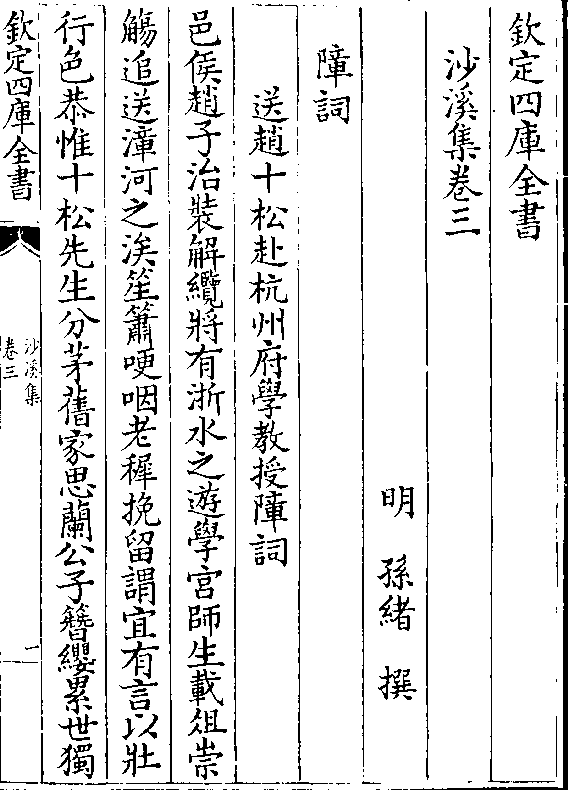 欽定四庫全書
沙溪集卷三
明 孫緒 撰
障詞
送趙十松赴杭州府學教授障詞
邑侯趙子治裝解纜將有浙水之遊學宮師生載俎崇
觴追送漳河之涘笙簫哽咽老穉挽留謂宜有言以壯
行色恭惟十松先生分茅舊家思蘭公子簪纓累世獨
欽定四庫全書
沙溪集
卷三
一